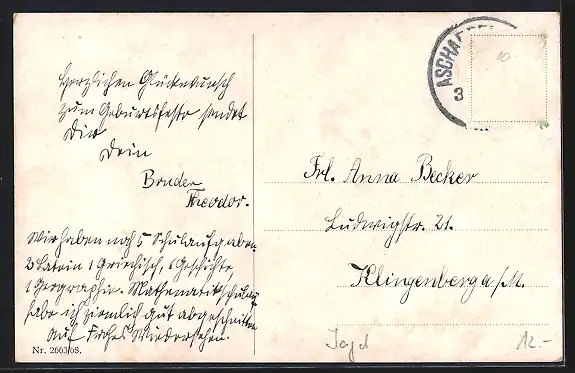 Herzlichen Glückwunsch
zum Geburtsfeste sendet
Dir
Dein
Bruder
Theodor.
Wir haben noch 5 Schulaufgaben
2 Latein 1 Griechisch, 1 Geschichte
1 Geographie. Mathematikschulaufg
habe ich ziemlich gut abgeschnitten
Auf frohes Wiedersehen.
Nr. 2663/68.
ASCHA
3
10
Frl. Anna Becker
Ludwigstr. 21.
Klingenberg a/M.
Jagd
12.-